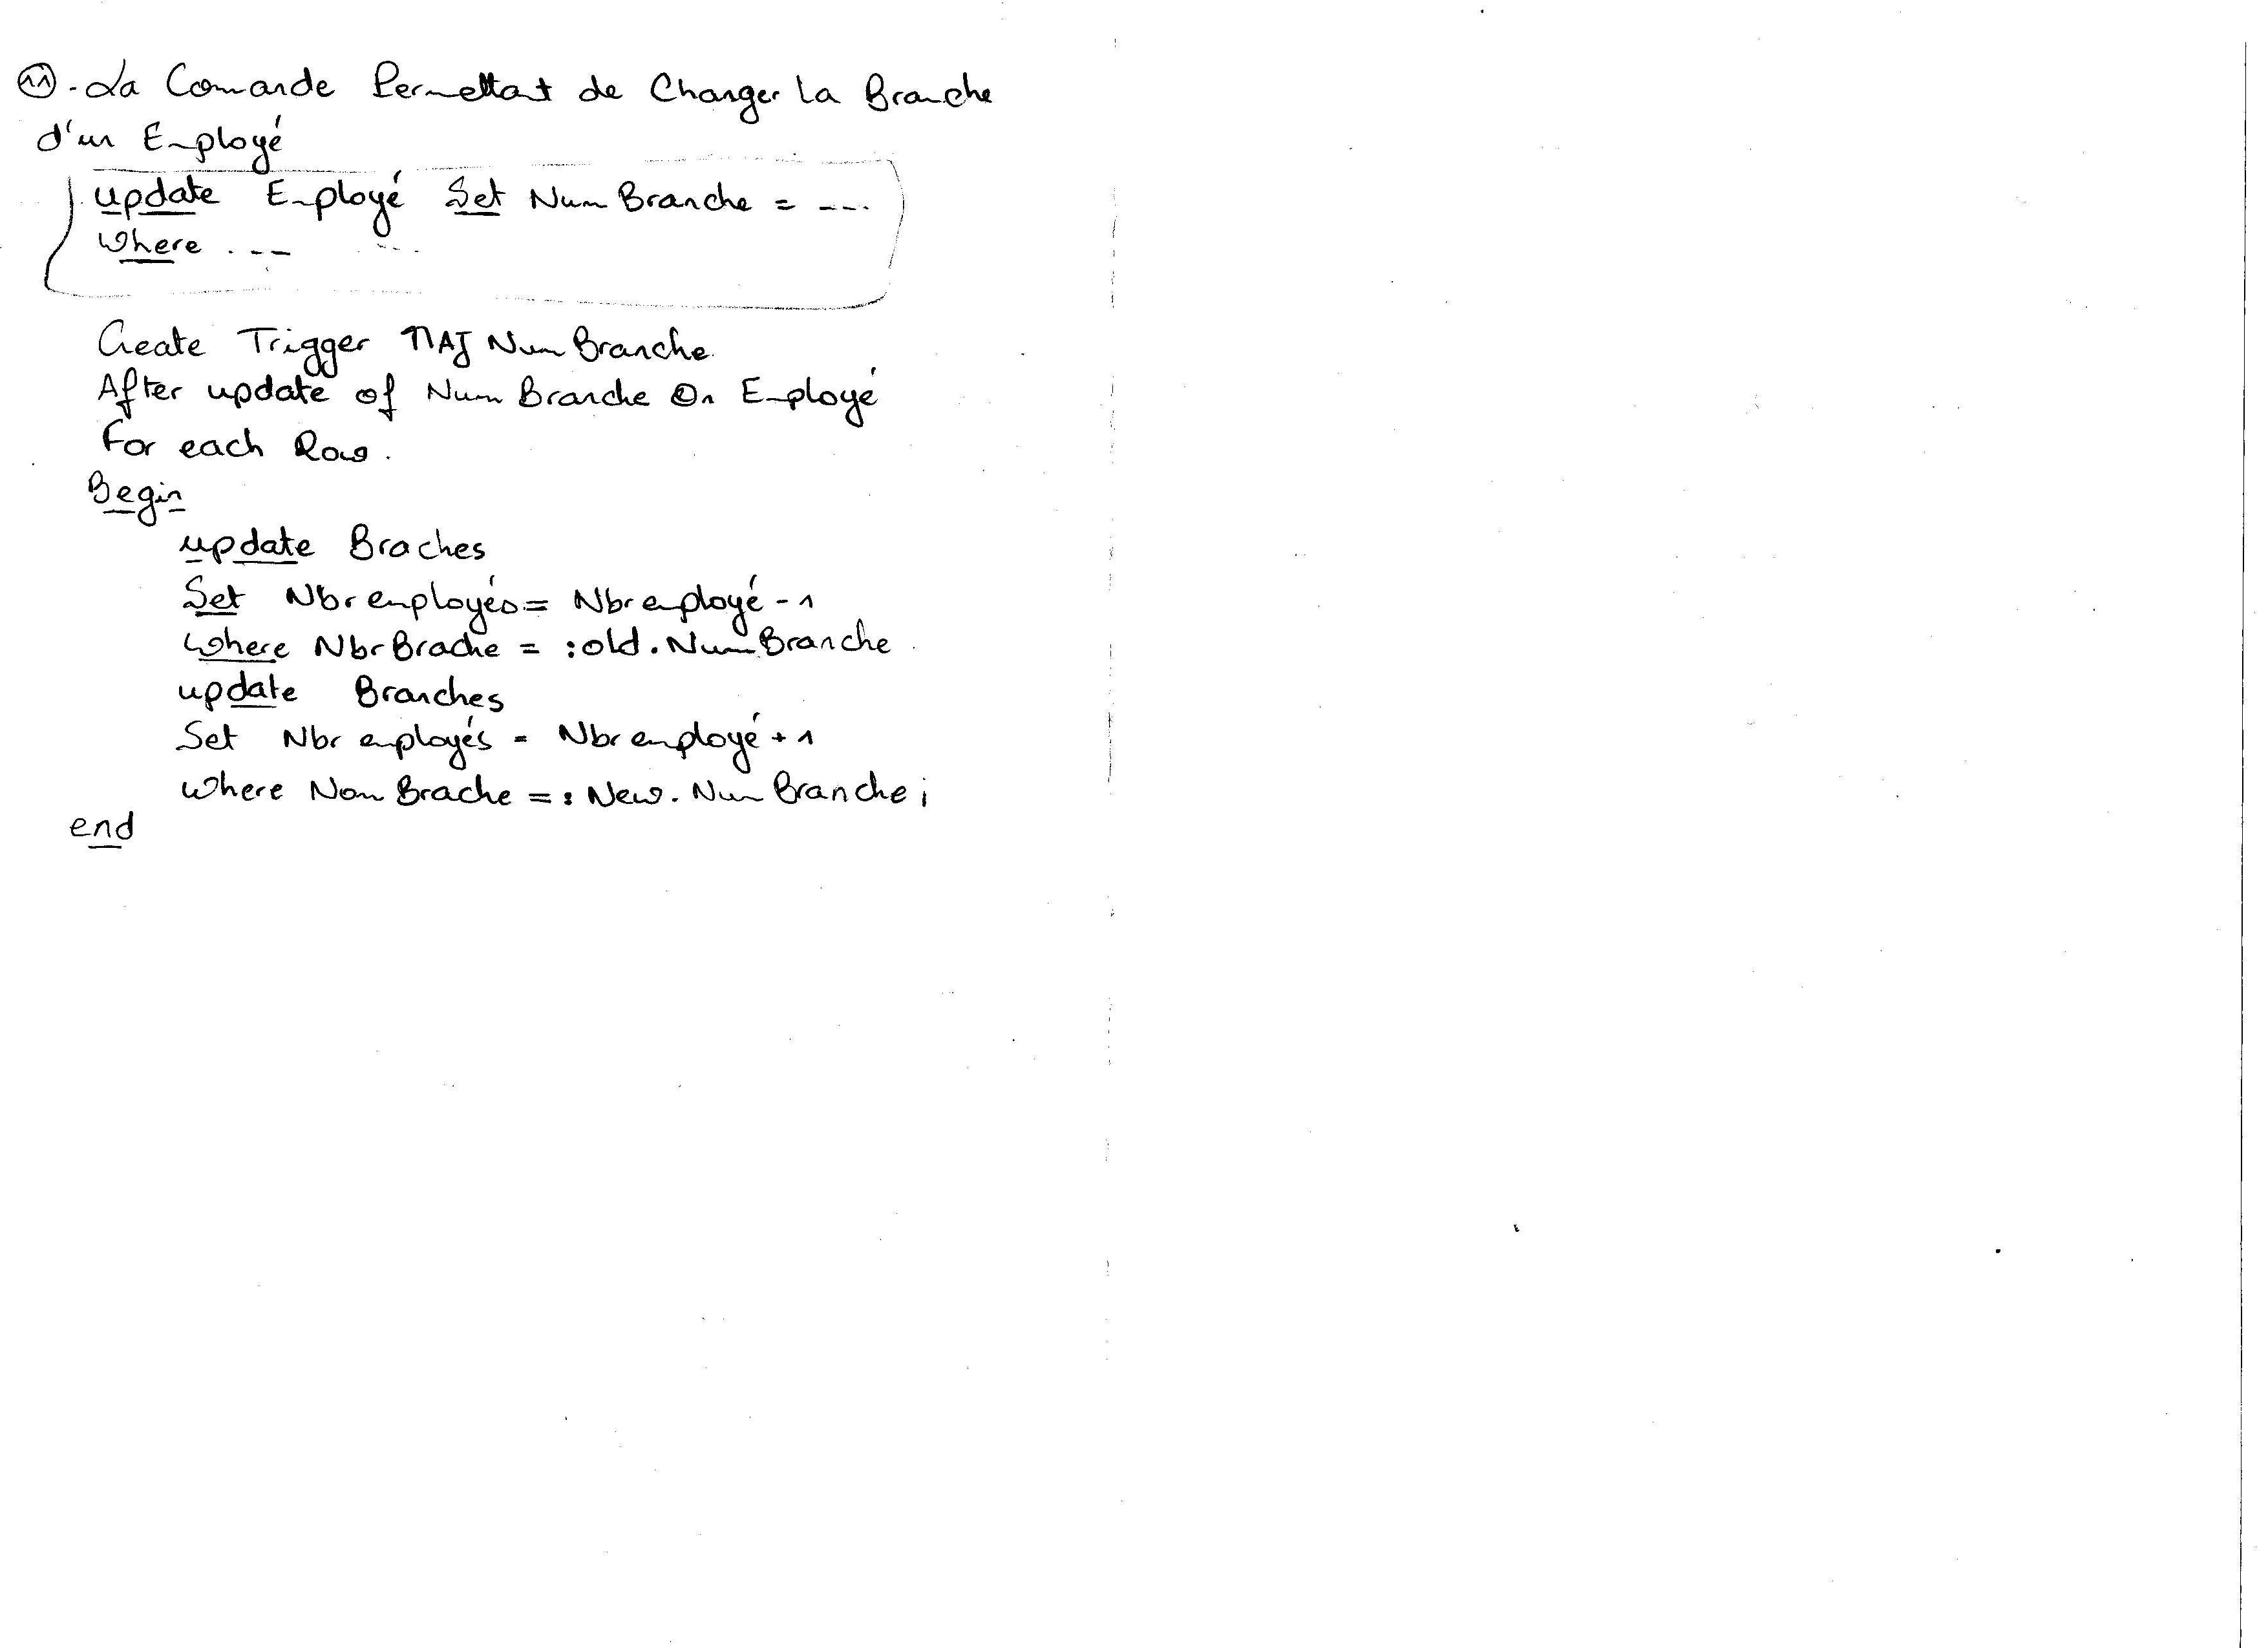 11. La Comande Permettant de Changer La Branche
d'un Employé
update Employé Set Num Branche = ....
Where ....
Create Trigger MAJ Num Branche
After update of Num Branche On Employé
For each Row.
Begin
update Braches
Set Nbr employés = Nbr employé - 1
where Nbr Brache = :old. Num Branche
update Branches
Set Nbr employés = Nbr employé + 1
where Nom Brache = : New. Num Branche ;
end